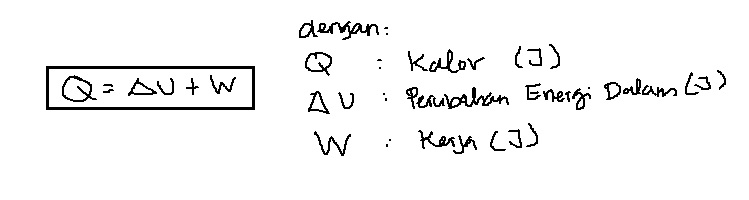 Q = ΔU + W
dengan:
Q : Kalor (J)
ΔU : Perubahan Energi Dalam (J)
W : Kerja (J)